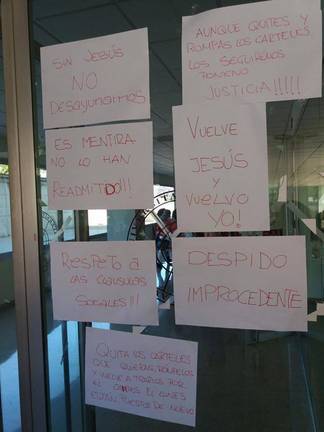 SIN JESÚS
NO
DESAYUNAMOS
AUNQUE QUITES Y
ROMPAS LOS CARTELES,
LOS SEGUIREMOS
PONIENDO
JUSTICIA!!!!!
ES MENTIRA
NO LO HAN
READMITIDO!!!
VUELVE
JESÚS
Y
VUELVO
YO!
RESPETO A
LAS CLÁUSULAS
SOCIALES!!!
DESPIDO
IMPROCEDENTE
QUITA LOS CARTELES
QUE QUIERAS, ROMPELOS
Y VUELVE A TIRARLOS POR
EL SUELO. EL LUNES
ESTÁN PUESTOS DE NUEVO